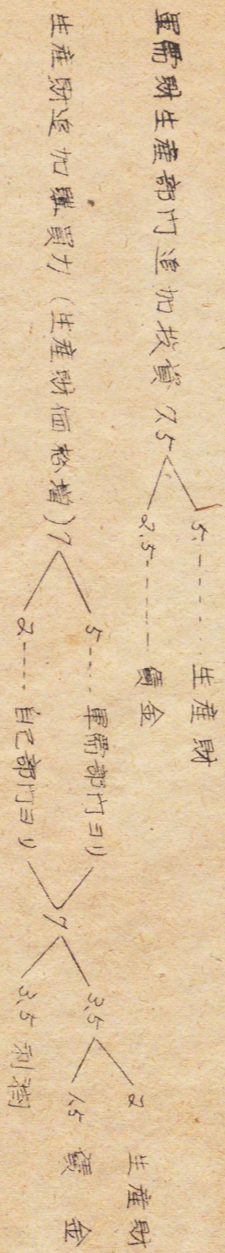 軍需財生産部門追加投資 7.5
5.-----生産財
2.5-----賃金
生産財追加購買力(生産財価格増)7
5----軍需部門ヨリ
2----自己部門ヨリ
7
3.5
2 生産財
1.5 賃金
3.5 利潤